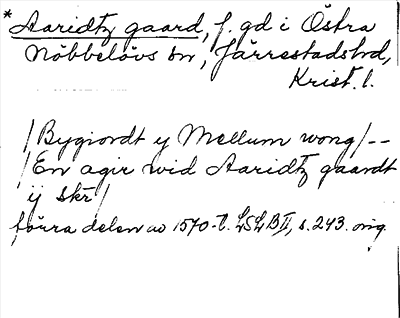 * Aaridtz gaard, f. gd i Östra
Nöbbelövs sn, Järrestads hd,
Krist. l.
/ Bygiordt y Mellum wong / --
/ En agir wid Aaridtz gaardt
ij skr /
förra delen av 1570-t. LSLB II, s. 243. orig.